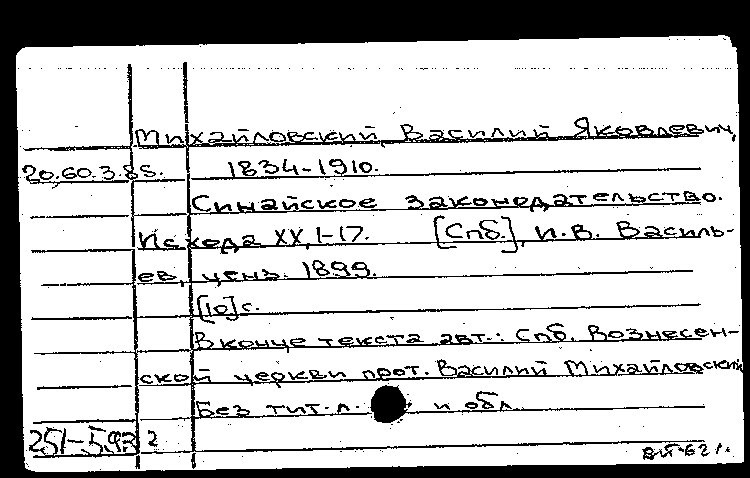 Михайловский, Василий Яковлевич,
20.60.3.85. 1834-1910.
Синайское законодательство.
Исхода XX, 1-17. [Спб.], И.В. Василь-
ев, ценз. 1899.
[10] с.
В конце текста авт.: Спб. Вознесен-
ской церкви прот. Василий Михайловский
Без тит. л. и обл.
251-5932 2